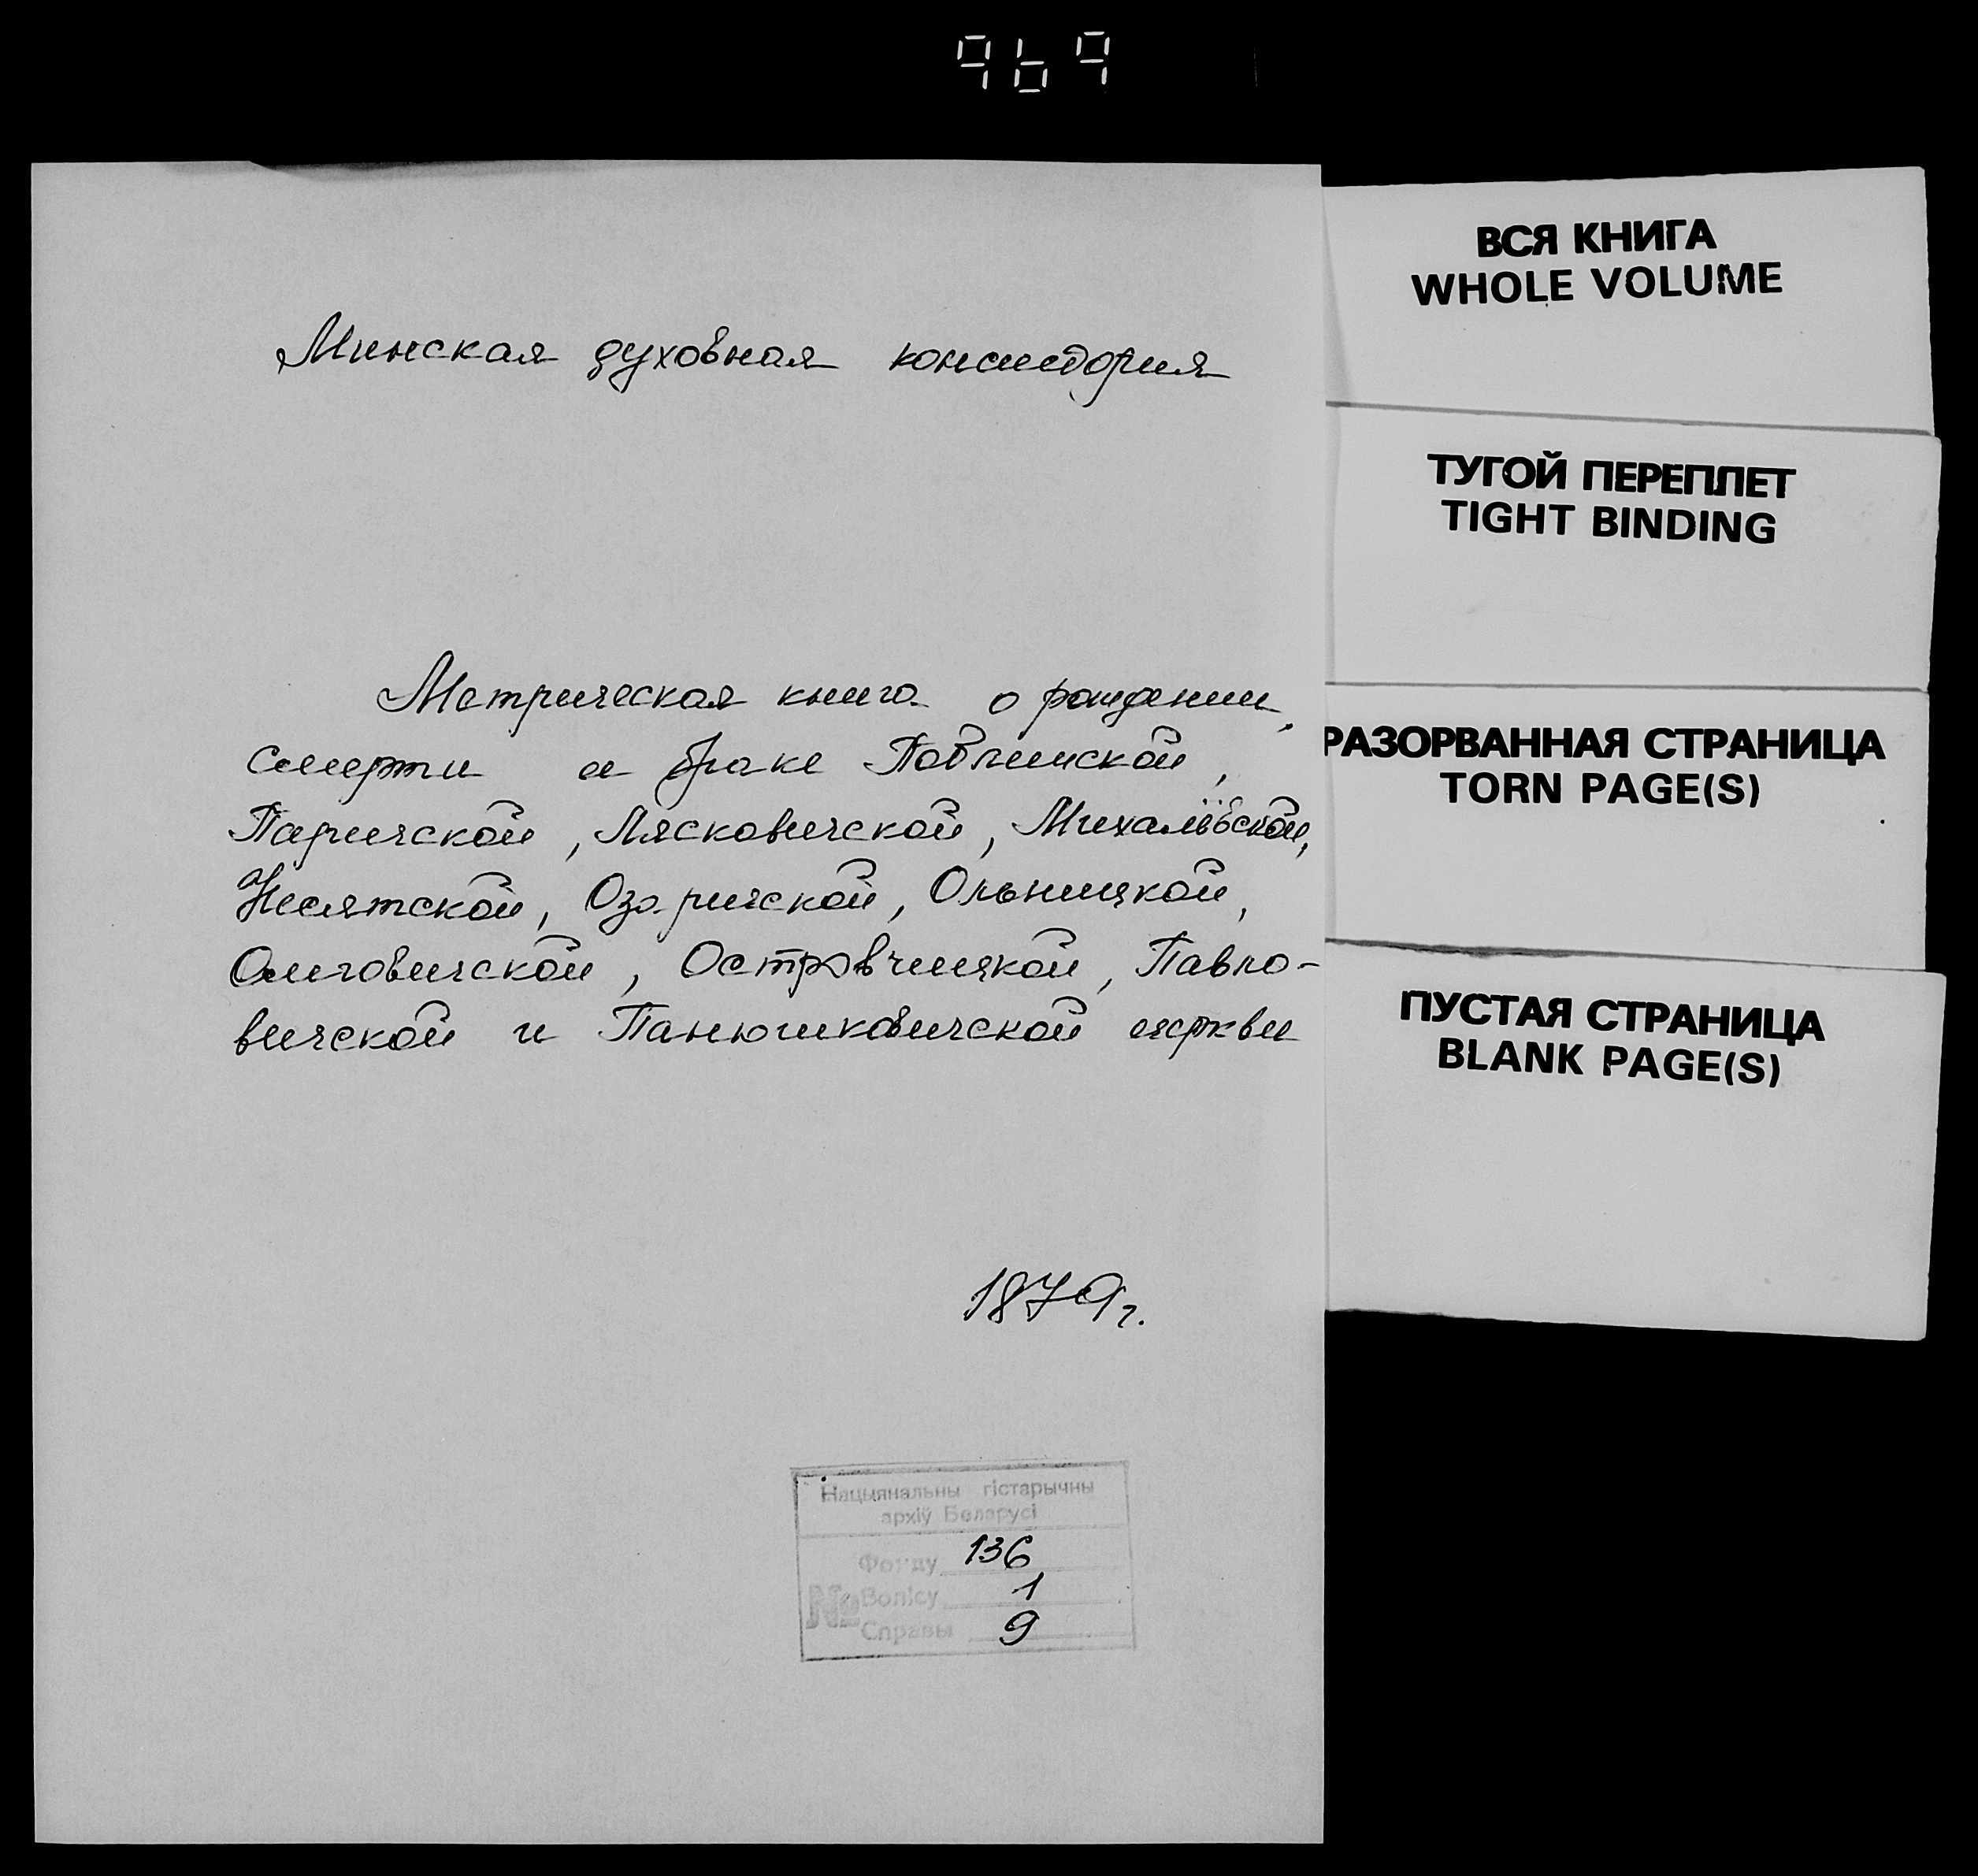 969
Минская духовная консистория
Метрическая книга о рождении,
смерти и браке Павчинской,
Паричской, Лясковичской, Михалёвской,
Несятской, Озаричской, Ольницкой,
Омговичской, Островчицкой, Павло-
вичской и Панюшковичской церкви
1879г.
Нацыянальны гістарычны
архіў Беларусі
Фонду 136
№ Вопісу 1
Справы 9
ВСЯ КНИГА
WHOLE VOLUME
ТУГОЙ ПЕРЕПЛЕТ
TIGHT BINDING
РАЗОРВАННАЯ СТРАНИЦА
TORN PAGE(S)
ПУСТАЯ СТРАНИЦА
BLANK PAGE(S)